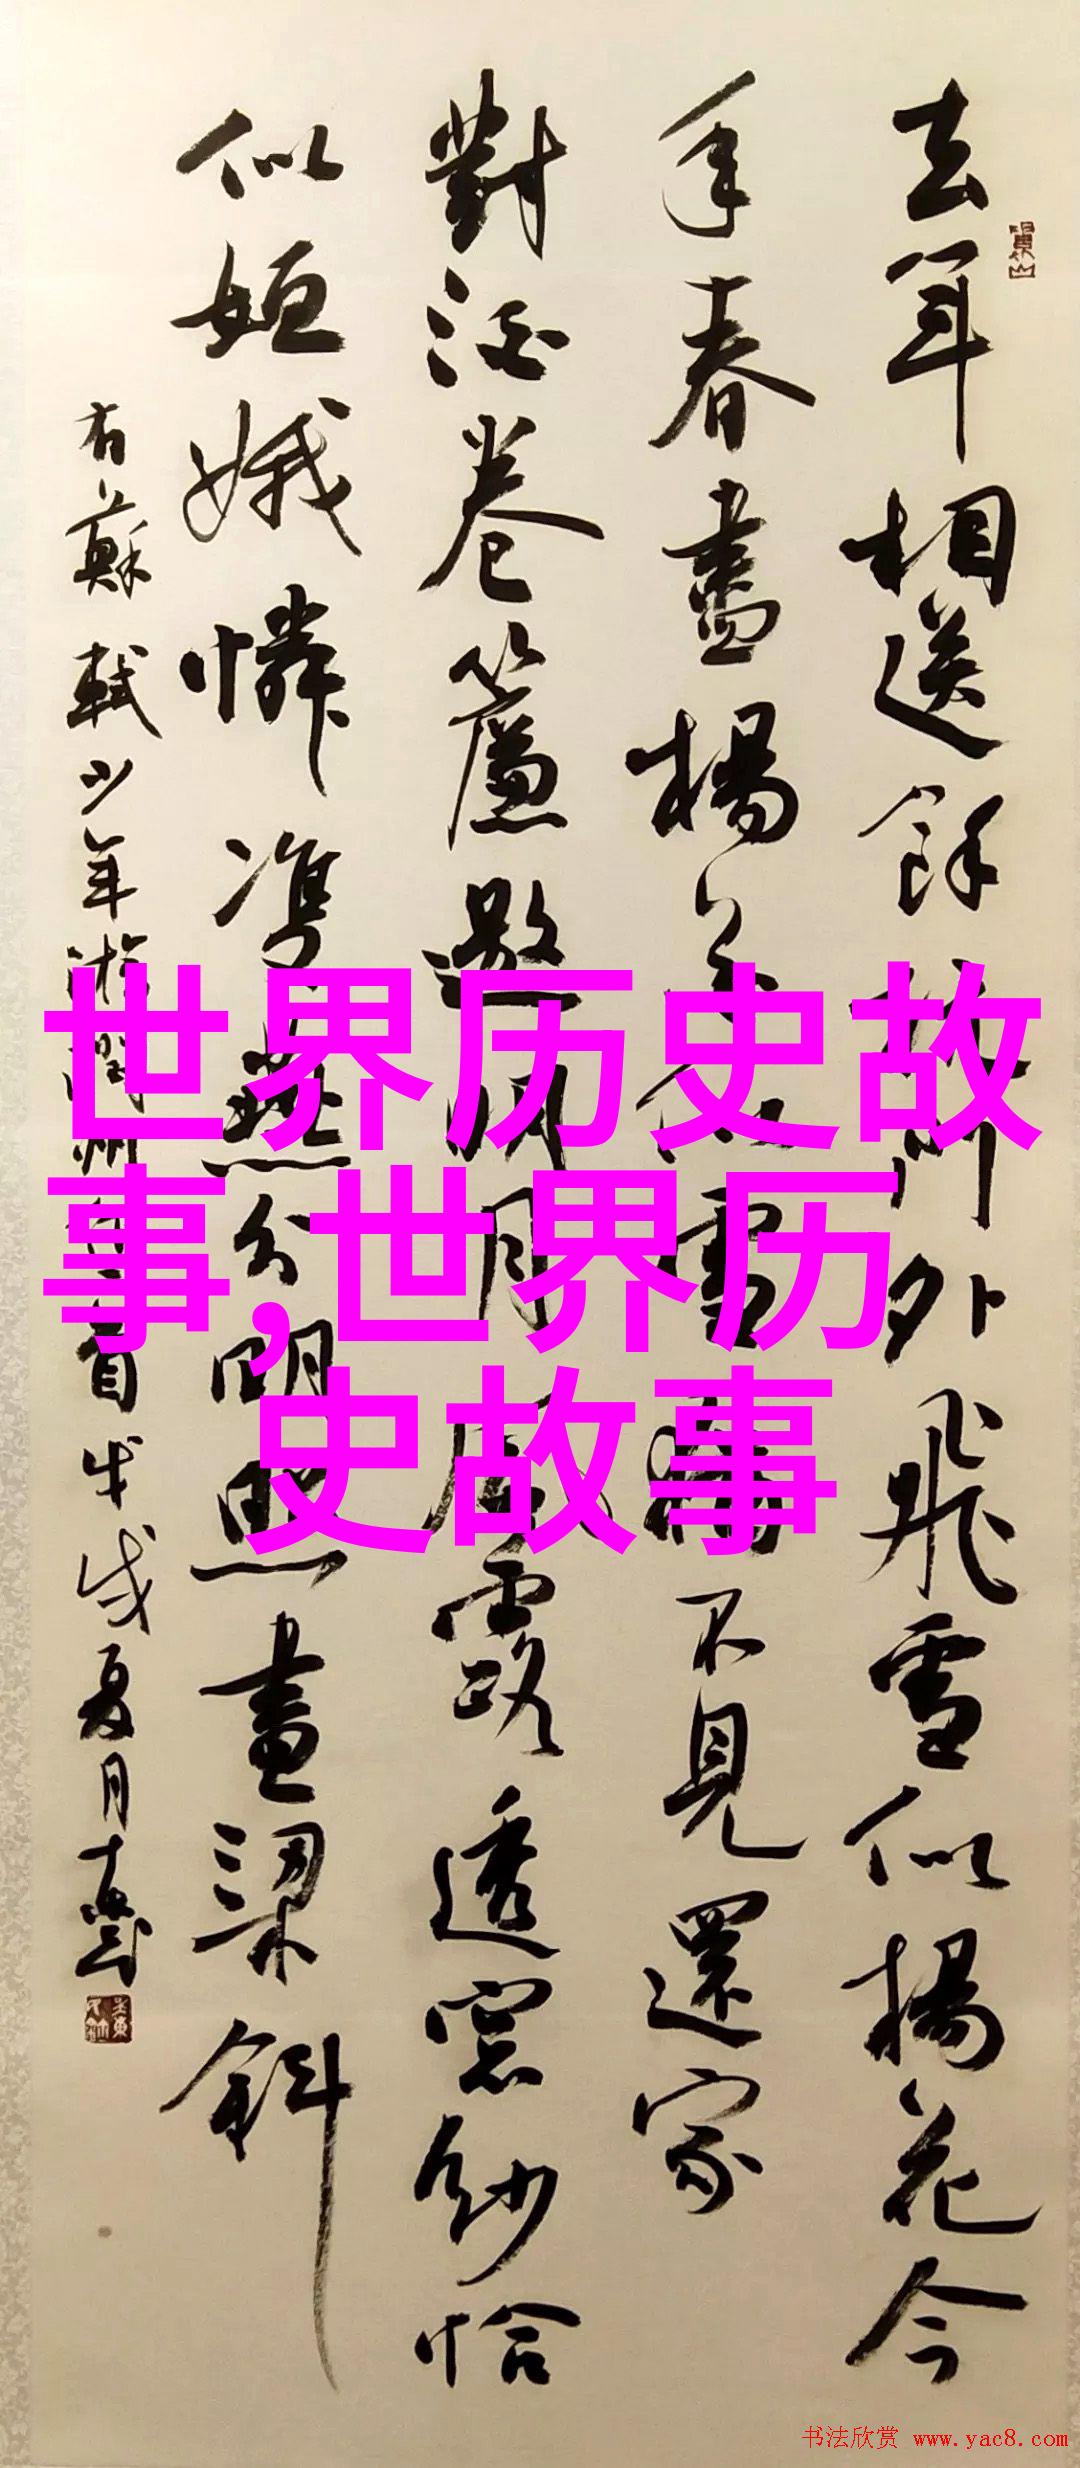 去年相送餘杭門外飛雪似楊花今
年春盡楊花似雪猶不見還家
對酒卷簾邀明月風露透窗紗恰
似姮娥憐雙燕分明照畫梁斜
右蘇軾少年游潤州作一首戊戌夏月
世界历史故
事,世界历
史故事
书法欣赏 www.yac8.com